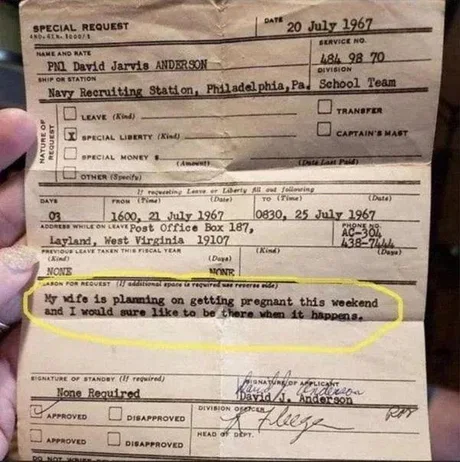 SPECIAL REQUEST
DATE
20 July 1967
NAME AND RATE
SERVICE NO.
PN1 David Jarvis ANDERSON
484 98 70
SHIP OR STATION
DIVISION
Navy Recruiting Station, Philadelphia, Pa. School Team
NATURE OF REQUEST
LEAVE (Kind)
TRANSFER
X SPECIAL LIBERTY (Kind)
CAPTAIN'S MAST
SPECIAL MONEY $
(Amount) (Date Last Paid)
OTHER (Specify)
If requesting Leave or Liberty fill out following
DAYS FROM (Time) (Date) TO (Time) (Date)
03 1600, 21 July 1967 0830, 25 July 1967
ADDRESS WHILE ON LEAVE Post Office Box 187,
PHONE NO.
AC-304
Layland, West Virginia 19107
438-7444
PREVIOUS LEAVE TAKEN THIS FISCAL YEAR
(Kind) (Days) (Kind) (Days)
NONE NONE
REASON FOR REQUEST (If additional space is required use reverse side)
My wife is planning on getting pregnant this weekend
and I would sure like to be there when it happens.
SIGNATURE OF STANDBY (If required)
SIGNATURE OF APPLICANT
None Required
David J. Anderson
David J. Anderson
APPROVED DISAPPROVED
DIVISION OFFICER
APPROVED DISAPPROVED
HEAD OF DEPT.